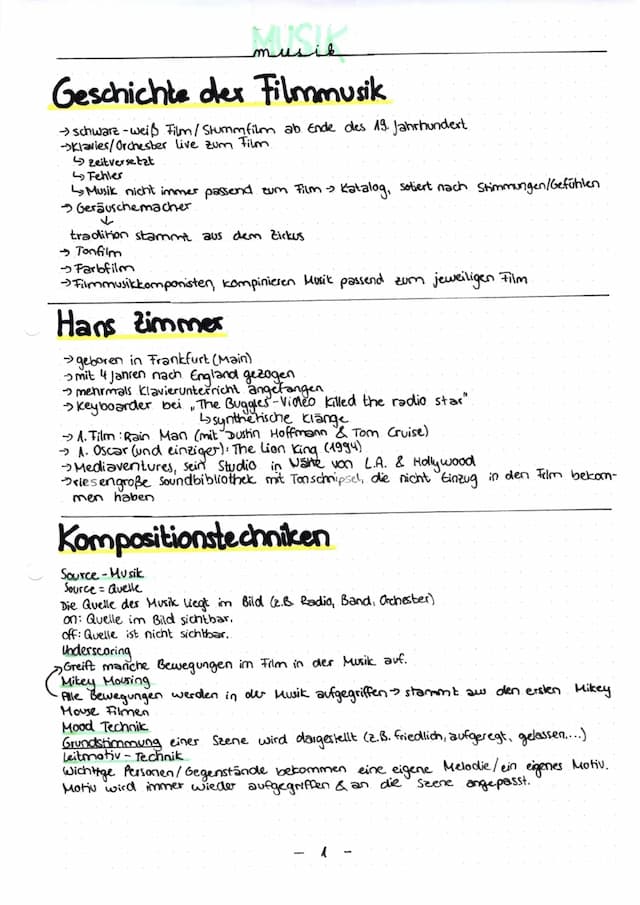 MUSIK
musik
Geschichte der Filmmusik
→ schwarz-weiß Film/Stummfilm ab Ende des 19. Jahrhundert
→ Klavier/Orchester live zum Film
↳ zeitversetzt
↳ Fehler
↳ Musik nicht immer passend zum Film → Katalog, sotiert nach Stimmungen/Gefühlen
→ Geräuschemacher
↓
tradition stammt aus dem Zirkus
→ Tonfilm
→ Farbfilm
→ Filmmusikkomponisten, kompinieren Musik passend zum jeweiligen Film
Hans Zimmer
→ geboren in Frankfurt (Main)
→ mit 4 Jahren nach England gezogen
→ mehrmals Klavierunterricht angefangen
→ Keyboarder bei „The Buggles-Video killed the radio star"
↳ synthetische Klänge
→ 1. Film: Rain Man (mit Dustin Hoffmann & Tom Cruise)
→ 1. Oscar (und einziger): The Lion King (1994)
→ Mediaventures, sein Studio in Nähe von L.A. & Hollywood
→ riesengroße Soundbibliothek mit Tonschnipsel, die nicht Einzug in den Film bekom-
men haben
Kompositionstechniken
Source-Musik
Source = Quelle
Die Quelle der Musik liegt im Bild (z.B. Radio, Band, Orchester)
on: Quelle im Bild sichtbar.
off: Quelle ist nicht sichtbar.
Underscoring
Greift manche Bewegungen im Film in der Musik auf.
Mikey Mousing
Alle Bewegungen werden in der Musik aufgegriffen → stammt aus den ersten Mikey
Mouse Filmen
Mood Technik
Grundstimmung einer Szene wird dargestellt (z.B. friedlich, aufgeregt, gelassen,...)
Leitmotiv-Technik
Wichtige Personen/Gegenstände bekommen eine eigene Melodie/ein eigenes Motiv.
Motiv wird immer wieder aufgegriffen & an die Szene angepasst.
- 1 -